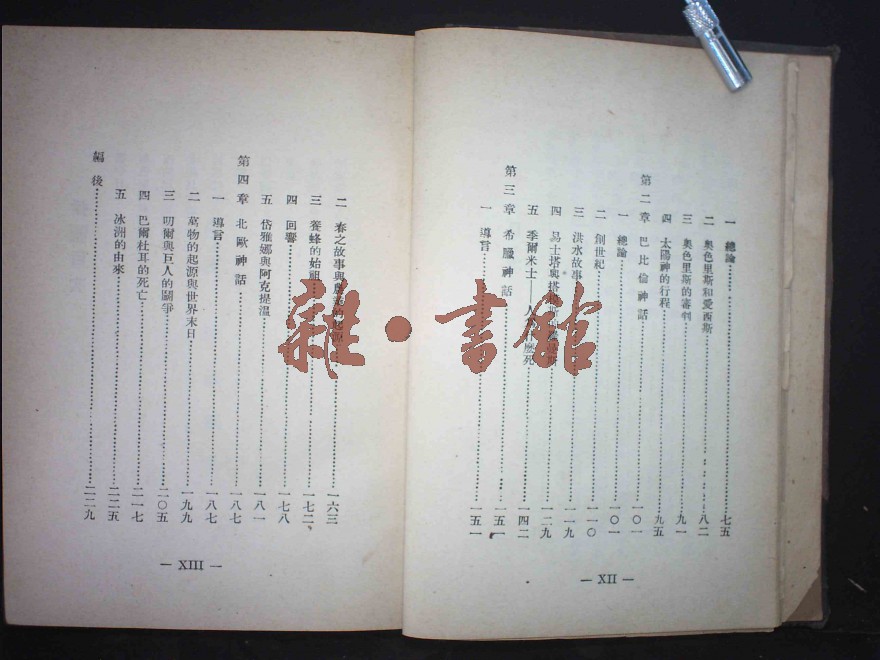 一 總論 七五
二 奧色里斯和愛西斯 八二
三 奧色里斯的審判 九一
四 太陽神的行程 九五
第二章 巴比倫神話 一〇一
一 總論 一〇一
二 創世紀 一一〇
三 洪水故事 一一九
四 易士塔與塔 一二九
五 季爾米士——人 什麽死 一四二
第三章 希臘神話 一五一
一 導言 一五一
— XII —
二 春之故事與 的起源 一六三
三 養蜂的始祖 一七二
四 回響 一七八
五 岱雅娜與阿克提溫 一八一
第四章 北歐神話 一八七
一 導言 一八七
二 萬物的起源與世界末日 一九九
三 叨爾與巨人的鬪爭 二〇五
四 巴爾杜耳的死亡 二一七
五 冰洲的由來 二二五
編後 二二九
— XIII —
雜·書館